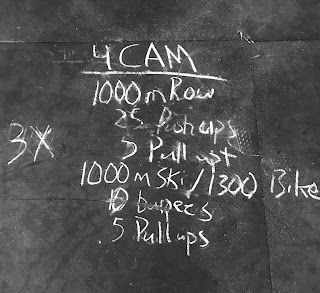 4 CAM
1000 m Row
25 Push ups
3X
5 Pull ups
1000 m Ski / 1300 Bike
10 burpees
5 Pull ups